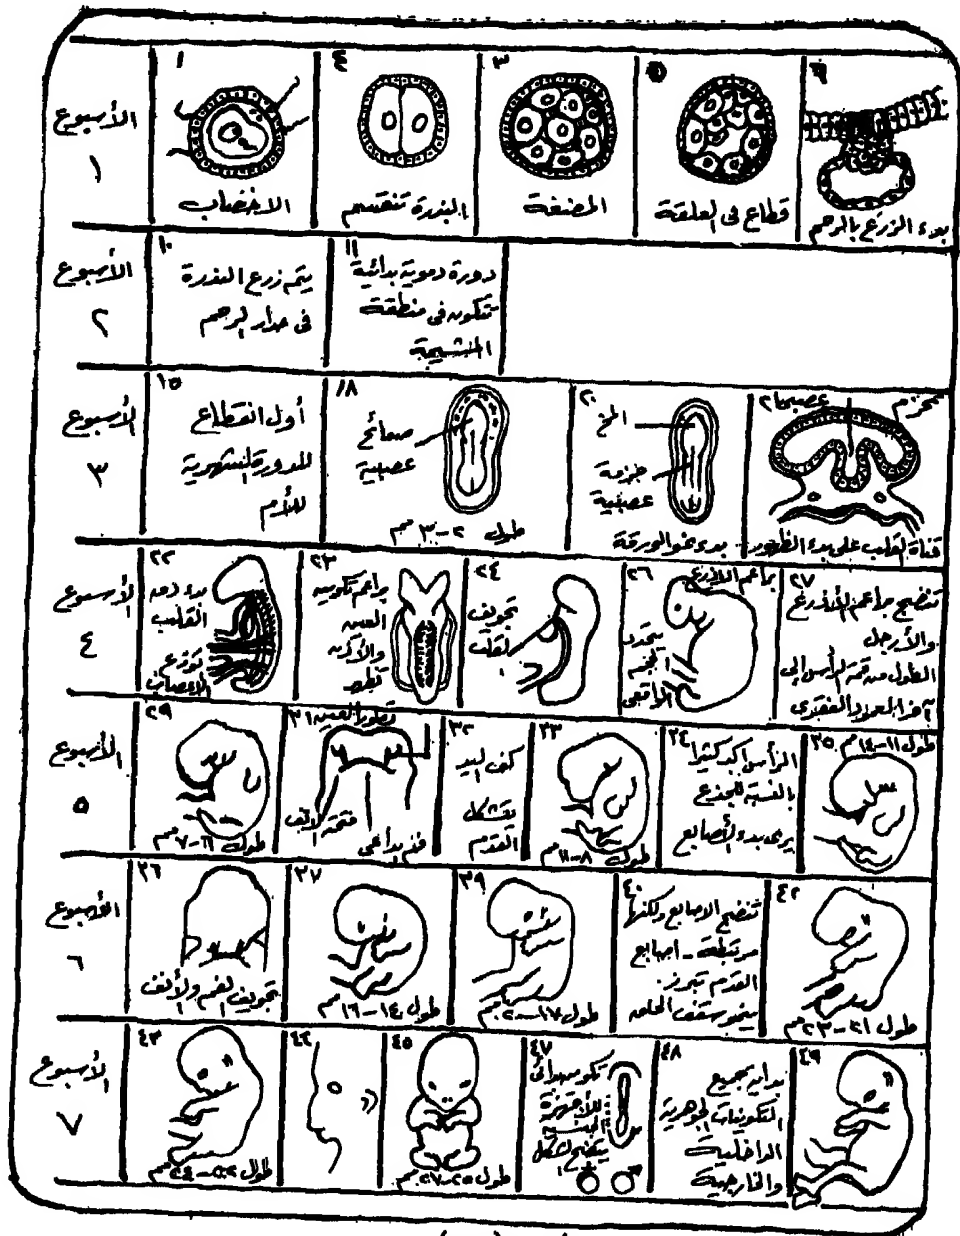 الأسبوع
١
١
الاخصاب
٤
البذرة تنقسم
٣
المضغة
قطاع في العلقة
بدء الزرع بالرحم
الأسبوع
٢
١٠
يتم زرع البذرة
في جدار الرحم
١١
دورة دموية بدائية
تتكون في منطقة
المشيمة
الأسبوع
٣
١٥
أول انقطاع
للدورة الشهرية
للأم
١٨
صفائح
عصبية
طول ٢-٣ مم
٢٠
المخ
حزمة
عصبية
بدء نمو الورقة
الأسبوع
٤
٢٢
بدء
القلب
٢٣
براعم تكوين
العين
والأذن
تظهر
٢٤
تجويف
القلب
٢٦
براعم الأذرع
٢٧
تتضح براعم الأذرع
والأرجل
الطول من قمة الرأس إلى
آخر العمود الفقري
الأسبوع
٥
٢٩
٣١
تطور العين
فتحة الأنف
فم بدائي
٣٢
كف اليد
يتشكل
القدم
٣٣
طول ٨-١١ مم
٣٤
الرأس أكبر كثيرا
بالنسبة للجذع
يرى بدء الأصابع
٣٥
طول ١١-١٤ مم
الأسبوع
٦
٣٦
تجويف الفم والأنف
٣٧
طول ١٤-١٦ مم
٣٩
طول ١٧-٢٠ مم
٤٠
تتضح الاصابع ولكنها
مرتبطة - اصابع
القدم تبرز.
٤٢
طول ٢١-٢٣ مم
الأسبوع
٧
٤٣
٤٤
٤٥
طول ٢٥-٢٧ مم
٤٧
٤٨
بداية جميع
التكوينات الجوهرية
الداخلية
والخارجية
٤٩